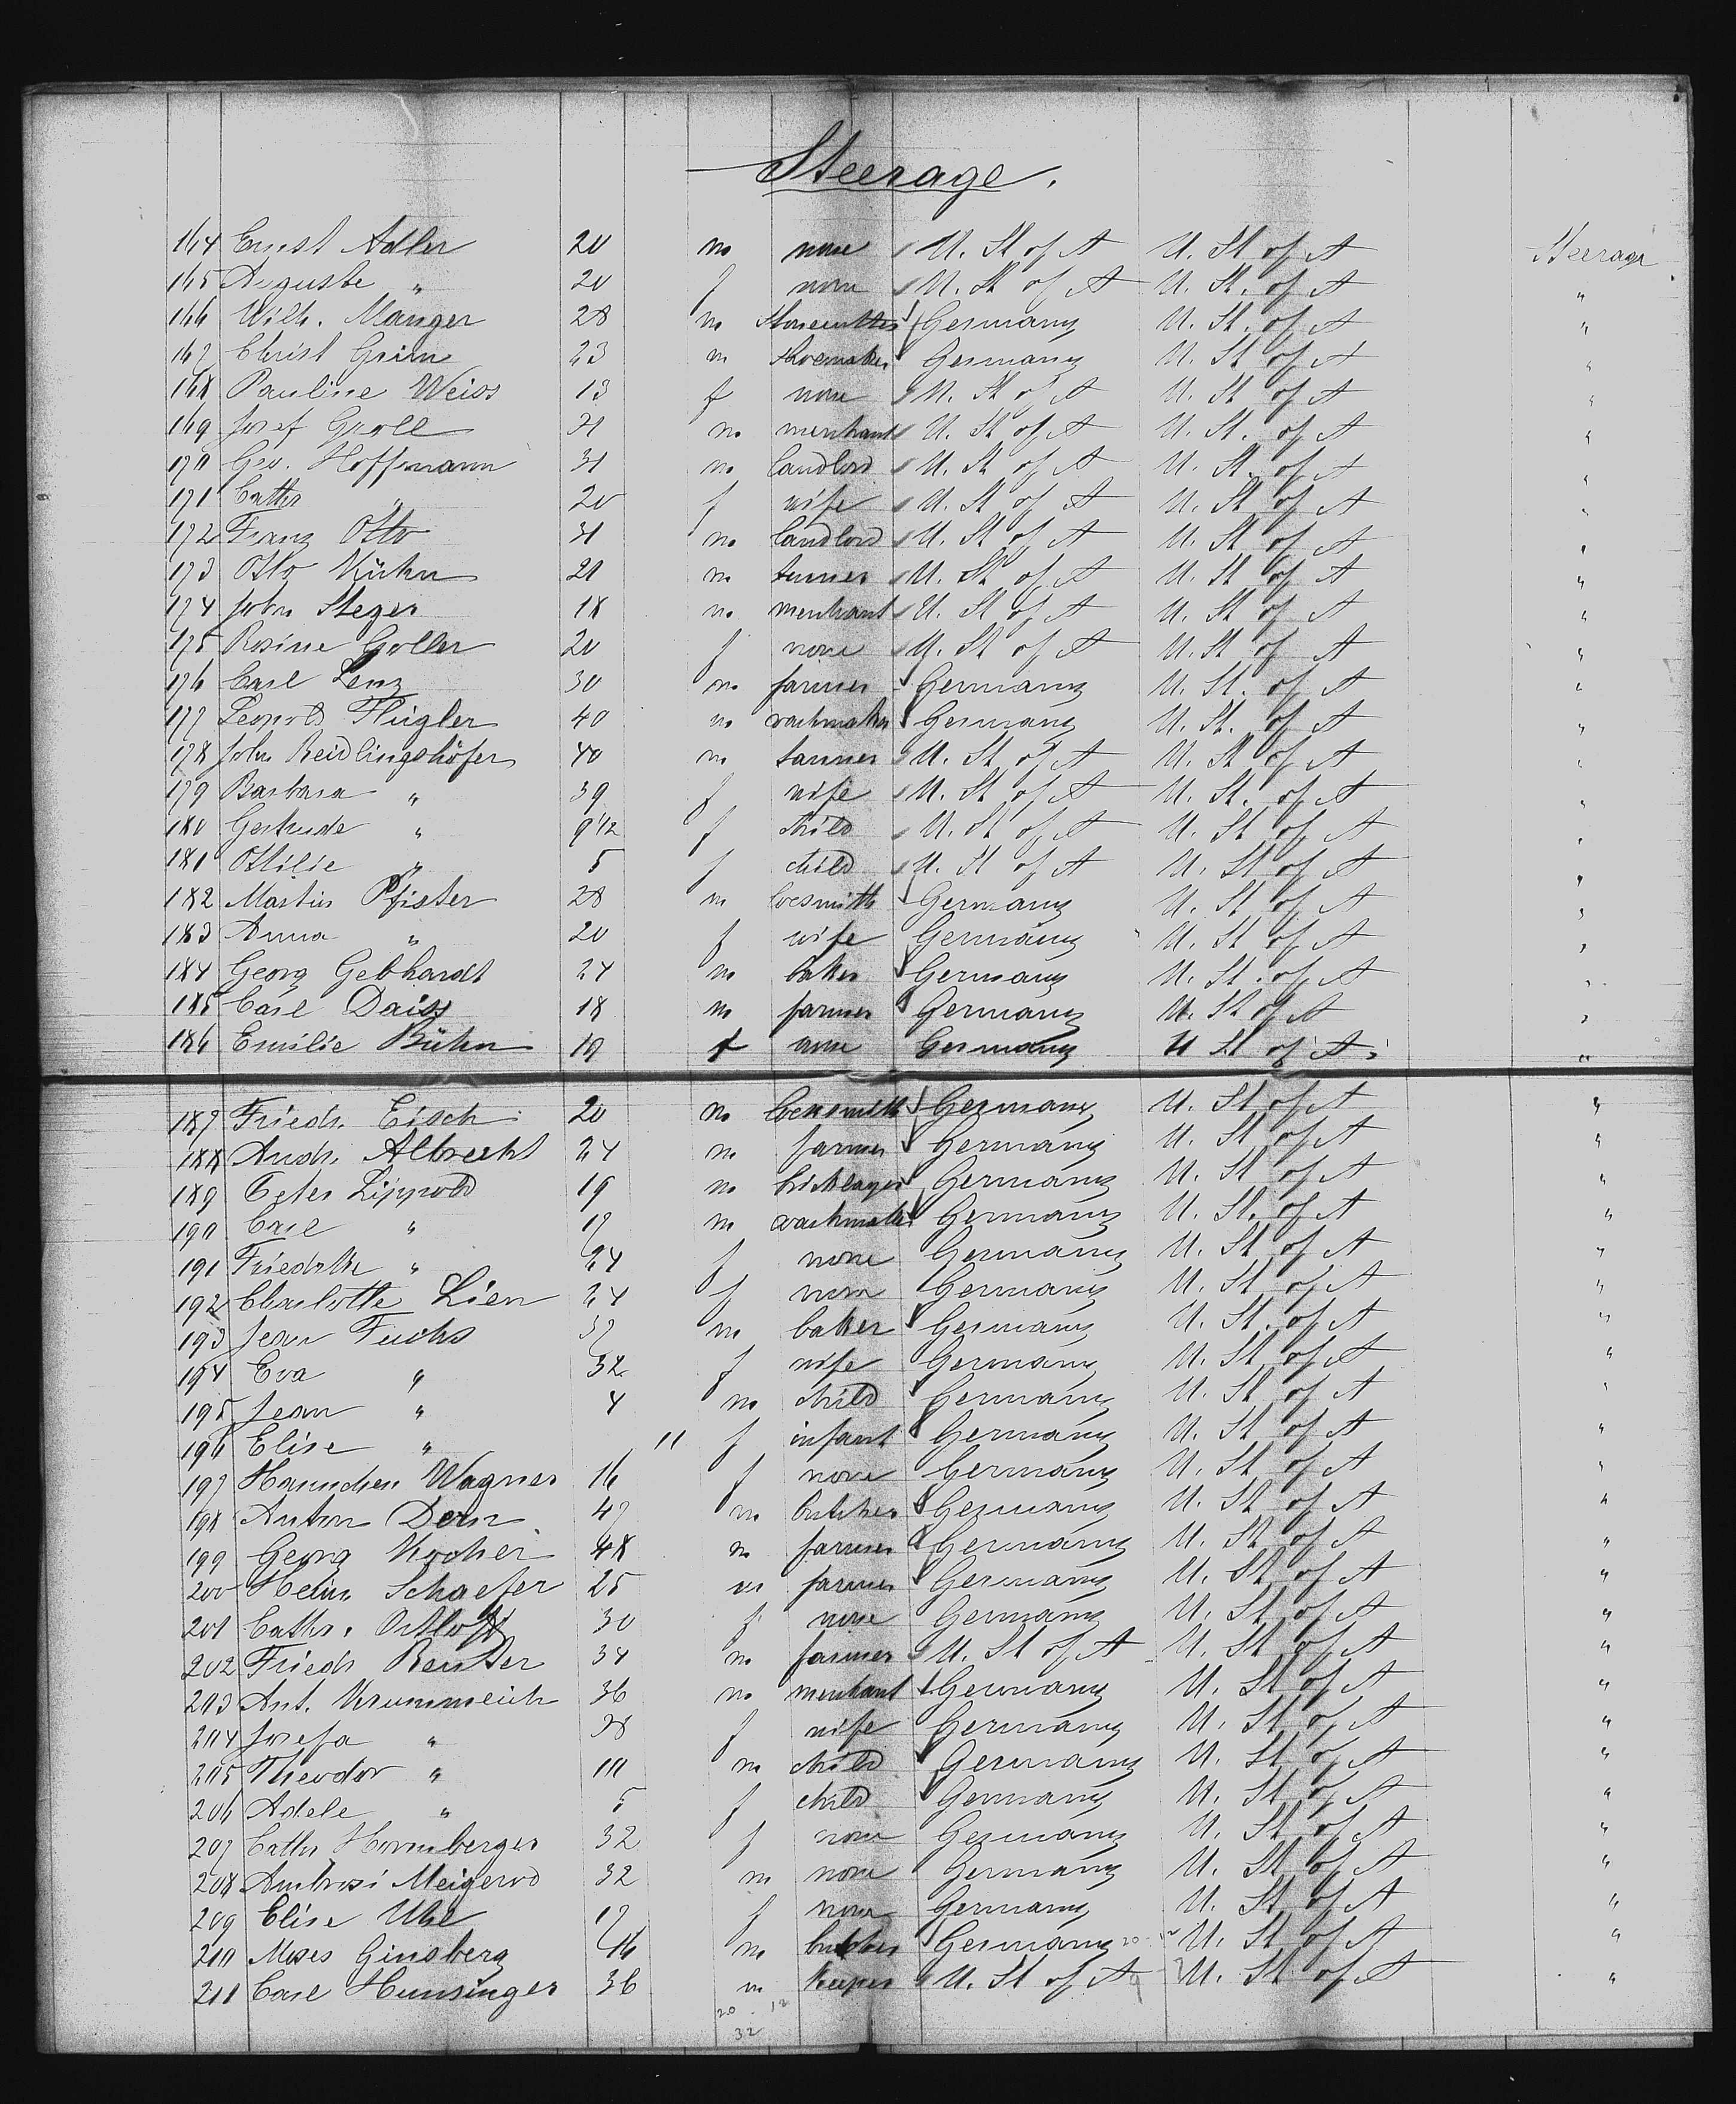 Steerage.
164 Ernst Adler 20 m none U. St of A U. St of A Steerage
165 Auguste " 20 f none U. St of A U. St. of A "
166 Wilh. Manger 28 m Stonecutter Germany U. St. of A "
167 Christ Grim 23 m Shoemaker Germany U. St of A "
168 Pauline Weiss 13 f none U. St of A U. St of A "
169 Josef Groll 21 m merchant U. St of A U. St. of A "
170 Geo. Hoffmann 31 m landlord U. St of A U. St. of A "
171 Cathr " 20 f wife U. St of A U. St of A "
172 Franz Otto 31 m landlord U. St of A U. St of A "
173 Otto Kühn 21 m U. St of A U. St of A "
174 John Steger 18 m merchant U. St of A U. St of A "
175 Rosine Goller 20 f none U. St of A U. St of A "
176 Carl Lenz 30 m farmer Germany U. St. of A "
177 Leopold Flügler 40 m Germany U. St. of A "
178 John Reidlingshöfer 40 m tanner U. St of A U. St of A "
179 Barbara " 39 f wife U. St of A U. St. of A "
180 Gertrude " 9 1/2 f child U. St of A U. St of A "
181 Ottilie " 5 f child U. St of A U. St of A "
182 Martin Pfister 28 m locsmith Germany U. St of A "
183 Anna " 20 f wife Germany U. St of A "
184 Georg Gebhardt 24 m baker Germany U. St. of A "
185 Carl Daiss 18 m farmer Germany U. St of A "
186 Emilie Bühn 19 f none Germany U St of A "
187 Friedr. Eisch 20 m locksmith Germany U. St of A "
188 Andr. Albrecht 24 m farmer Germany U. St of A "
189 Peter Lippold 19 m bricklayer Germany U. St of A "
190 Carl " 17 m Germany U. St. of A "
191 Friedrke " 24 f none Germany U. St of A "
192 Charlotte Lien 24 f none Germany U. St of A "
193 Jean Fuchs 37 m baker Germany U. St. of A "
194 Eva " 32 f wife Germany U. St of A "
195 Jean " 4 m child Germany U. St of A "
196 Elise " 11 f infant Germany U. St of A "
197 Hannchen Wagner 16 f none Germany U. St of A "
198 Anton Dorn 47 m butcher Germany U. St of A "
199 Georg Kocher 48 m farmer Germany U. St of A "
200 Heinr. Schaefer 25 m farmer Germany U. St of A "
201 Cathr. 30 f none Germany U. St of A "
202 Friedr Reuter 34 m farmer U. St of A U. St of A "
203 Ant. Krummeich 36 m merchant Germany U. St of A "
204 Josefa " 28 f wife Germany U. St of A "
205 Theodor " 10 m child Germany U. St of A "
206 Adele " 5 f child Germany U. St of A "
207 Cathr Hornberger 32 f none Germany U. St of A "
208 Ambrosi Meigerod 32 m none Germany U. St of A "
209 Elise Uhl 17 f none Germany U. St of A "
210 Moses Ginsberg 46 m butcher Germany U. St of A "
211 Carl Hunsinger 36 m keeper U. St of A U. St of A "
20 . 12
32